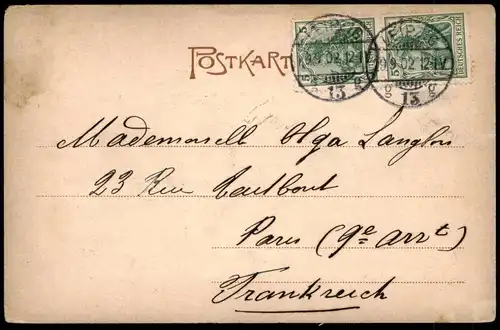 POSTKARTE
LEIPZIG
9.9.02.12-1V
13
g g
LEIPZIG
9.9.02.12-1V
13
g g
5 5
DEUTSCHES REICH
Mademoisell Olga Langlois
23 Rue Taitbout
Paris (9e arrt)
Frankreich